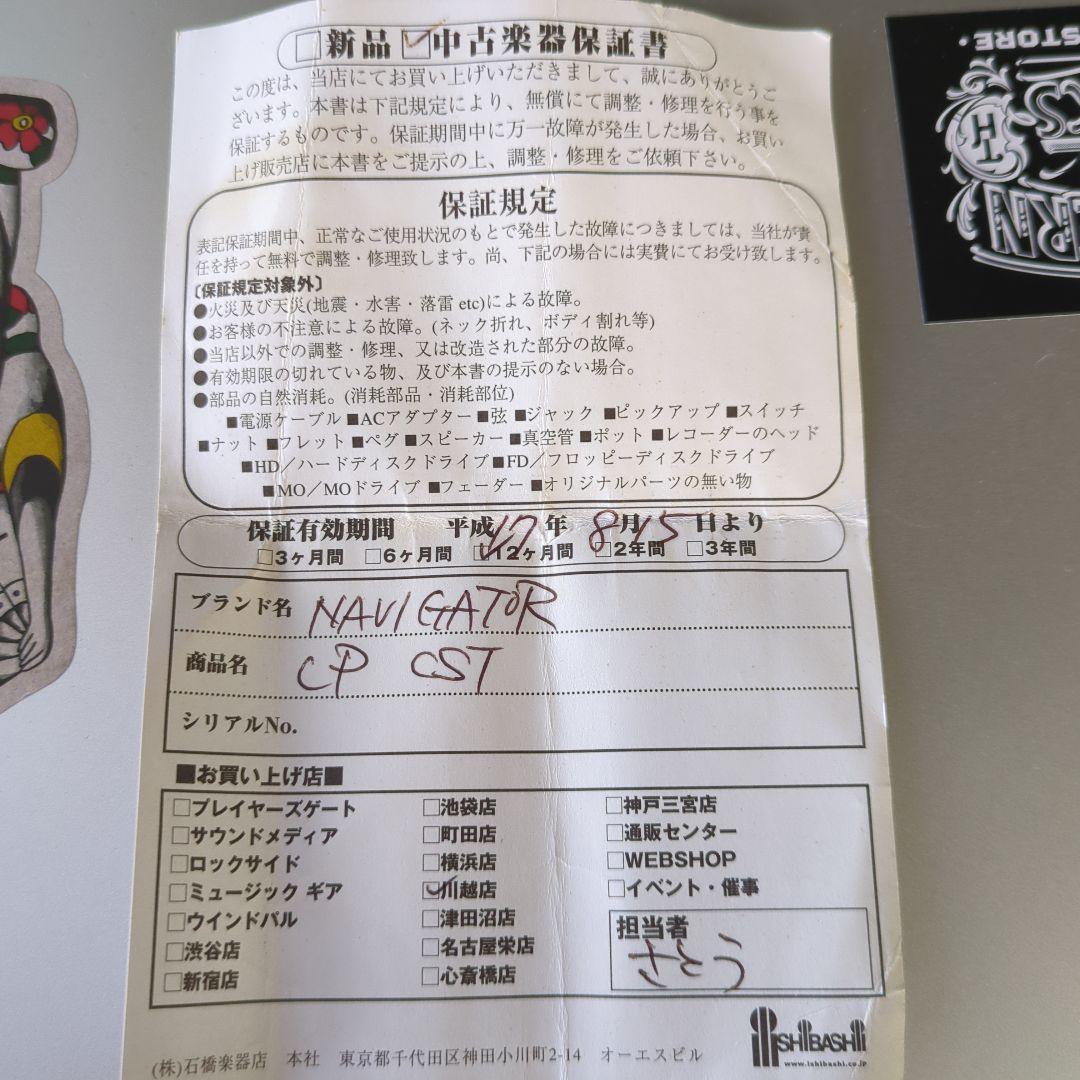 □新品 ☑中古楽器保証書
この度は、当店にてお買い上げいただきまして、誠にありがとうご
ざいます。本書は下記規定により、無償にて調整・修理を行う事を
保証するものです。保証期間中に万一故障が発生した場合、お買い
上げ販売店に本書をご提示の上、調整・修理をご依頼下さい。
保証規定
表記保証期間中、正常なご使用状況のもとで発生した故障につきましては、当社が責
任を持って無料で調整・修理致します。尚、下記の場合には実費にてお受け致します。
〔保証規定対象外〕
●火災及び天災(地震・水害・落雷 etc)による故障。
●お客様の不注意による故障。(ネック折れ、ボディ割れ等)
●当店以外での調整・修理、又は改造された部分の故障。
●有効期限の切れている物、及び本書の提示のない場合。
●部品の自然消耗。(消耗部品・消耗部位)
■電源ケーブル ■ACアダプター ■弦 ■ジャック ■ピックアップ ■スイッチ
■ナット ■フレット ■ペグ ■スピーカー ■真空管 ■ポット ■レコーダーのヘッド
■HD／ハードディスクドライブ ■FD／フロッピーディスクドライブ
■MO／MOドライブ ■フェーダー ■オリジナルパーツの無い物
保証有効期間 平成17年 8月15日より
□3ヶ月間 □6ヶ月間 ☑12ヶ月間 □2年間 □3年間
ブランド名 NAVIGATOR
商品名 CP CST
シリアルNo.
■お買い上げ店■
□プレイヤーズゲート □池袋店 □神戸三宮店
□サウンドメディア □町田店 □通販センター
□ロックサイド □横浜店 □WEBSHOP
□ミュージック ギア ☑川越店 □イベント・催事
□ウインドパル □津田沼店
□渋谷店 □名古屋栄店
□新宿店 □心斎橋店
担当者
さとう
(株)石橋楽器店 本社 東京都千代田区神田小川町2-14 オーエスビル
ISHIBASHI
www.ishibashi.co.jp
STORE.